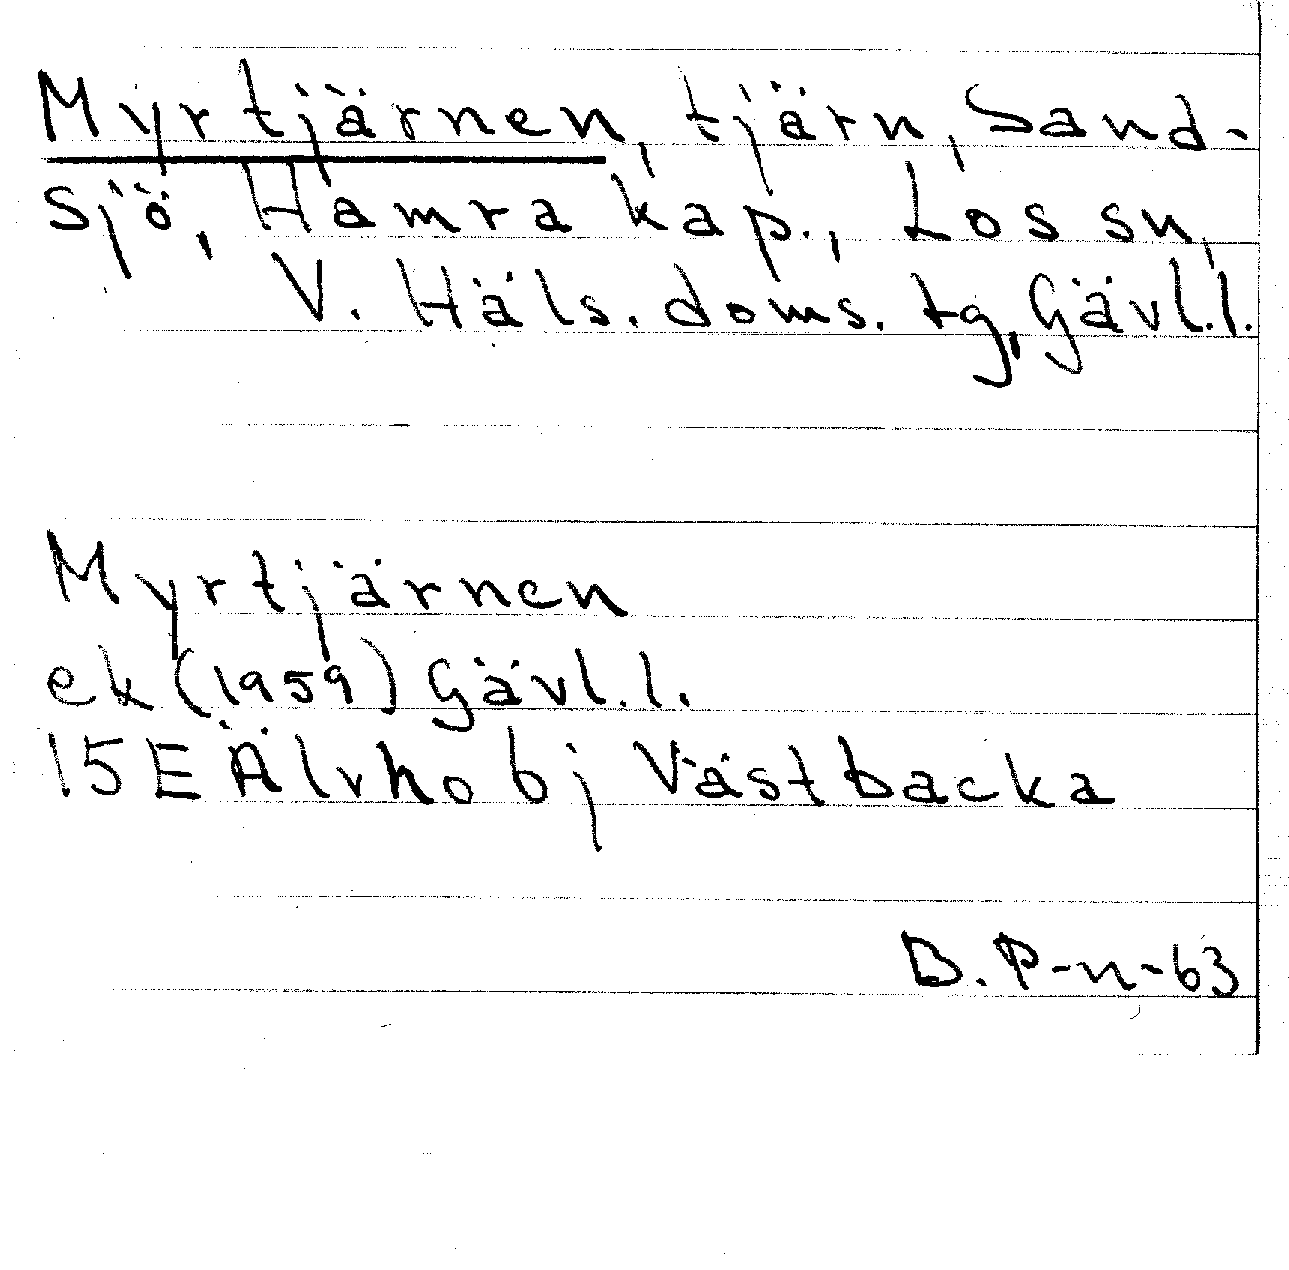 Myrtjärnen, tjärn, Sand-
sjö, Hamra kap., Los sn,
V. Häls. doms. tg, Gävl.l.
Myrtjärnen
ek (1959) Gävl.l.
15E Älvho bj Västbacka
B. P-n-63